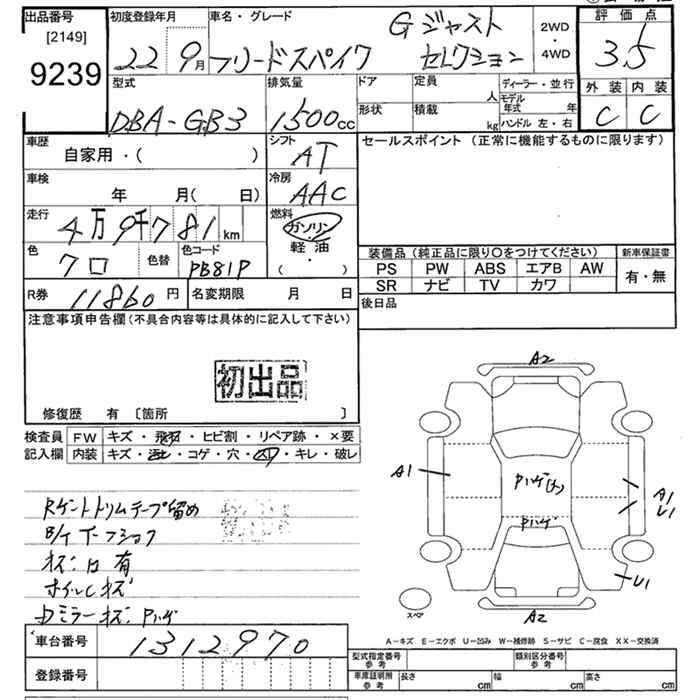 出品番号
[2149]
9239
初度登録年月
22 9月
車名・グレード
フリードスパイク
Gジャスト
セレクション
2WD
4WD
評価点
3.5
外装 内装
C C
型式
DBA-GB3
排気量
1500cc
ドア 定員 人
形状 積載 kg
ディーラー・並行
モデル年式 年
ハンドル 左・右
車歴
自家用・( )
シフト
AT
セールスポイント (正常に機能するものに限ります)
車検 年 月( 日)
冷房
AAC
走行
4万9千781km
燃料
ガソリン・軽油
( )
色
クロ
色替
色コード
PB81P
装備品 (純正品に限り〇をつけてください)
新車保証書
PS PW ABS エアB AW
有・無
SR ナビ TV カワ
R券 11860円
名変期限 月 日
後日品
注意事項申告欄(不具合内容等は具体的に記入して下さい)
初出品
修復歴 有 〔箇所 〕
検査員 FW キズ・飛石・ヒビ割・リペア跡・×要
記入欄 内装 キズ・汚れ・コゲ・穴・凹み・キレ・破レ
テープ留め
有
ホイルCキズ
ミラーキズ Pハゲ
車台番号 1312970
登録番号
A2
A1
Pハゲ(大)
Pハゲ
A1
U1
U1
スペア
A2
A-キズ E-エクボ U-凹み W-補修跡 S-サビ C-腐食 XX-交換済
型式指定番号 参考
類別区分番号 参考
車庫証明用 参考
長さ cm 幅 cm 高さ cm